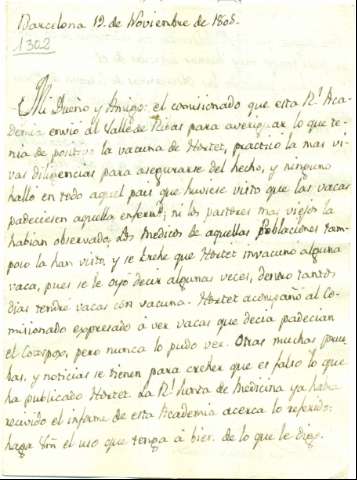 Barcelona 12 de Noviembre de 1805.
1302
Mi Dueño y Amigo: el comisionado que esta Rl. Aca-
demia envió al Valle de Ribas para averiguar lo que te-
nia de positivo la vacuna de Hortet, practicó la mas vi-
vas diligencias para asegurarse del hecho, y ninguno
halló en todo aquel pais que huviese visto que las vacas
padeciesen aquella enfermd; ni los pastores mas viejos la
habian observado, los medicos de aquellas poblaciones tam-
poco la han visto, y se crehe que Hortet invacunó alguna
vaca, pues se le oyó decir algunas veces, dentro tantos
dias tendré vacas con vacuna. Hortet acompañó al Co-
misionado expresado á ver vacas que decia padecian
el Cowpox, pero nunca lo pudo ver. Otras muchas prue-
bas, y noticias se tienen para creher que es falso lo que
ha publicado Hortet. La Rl. Junta de Medicina ya habrá
recivido el informe de esta Academia acerca lo referido:
haga el uso que tenga á bien de lo que le digo.